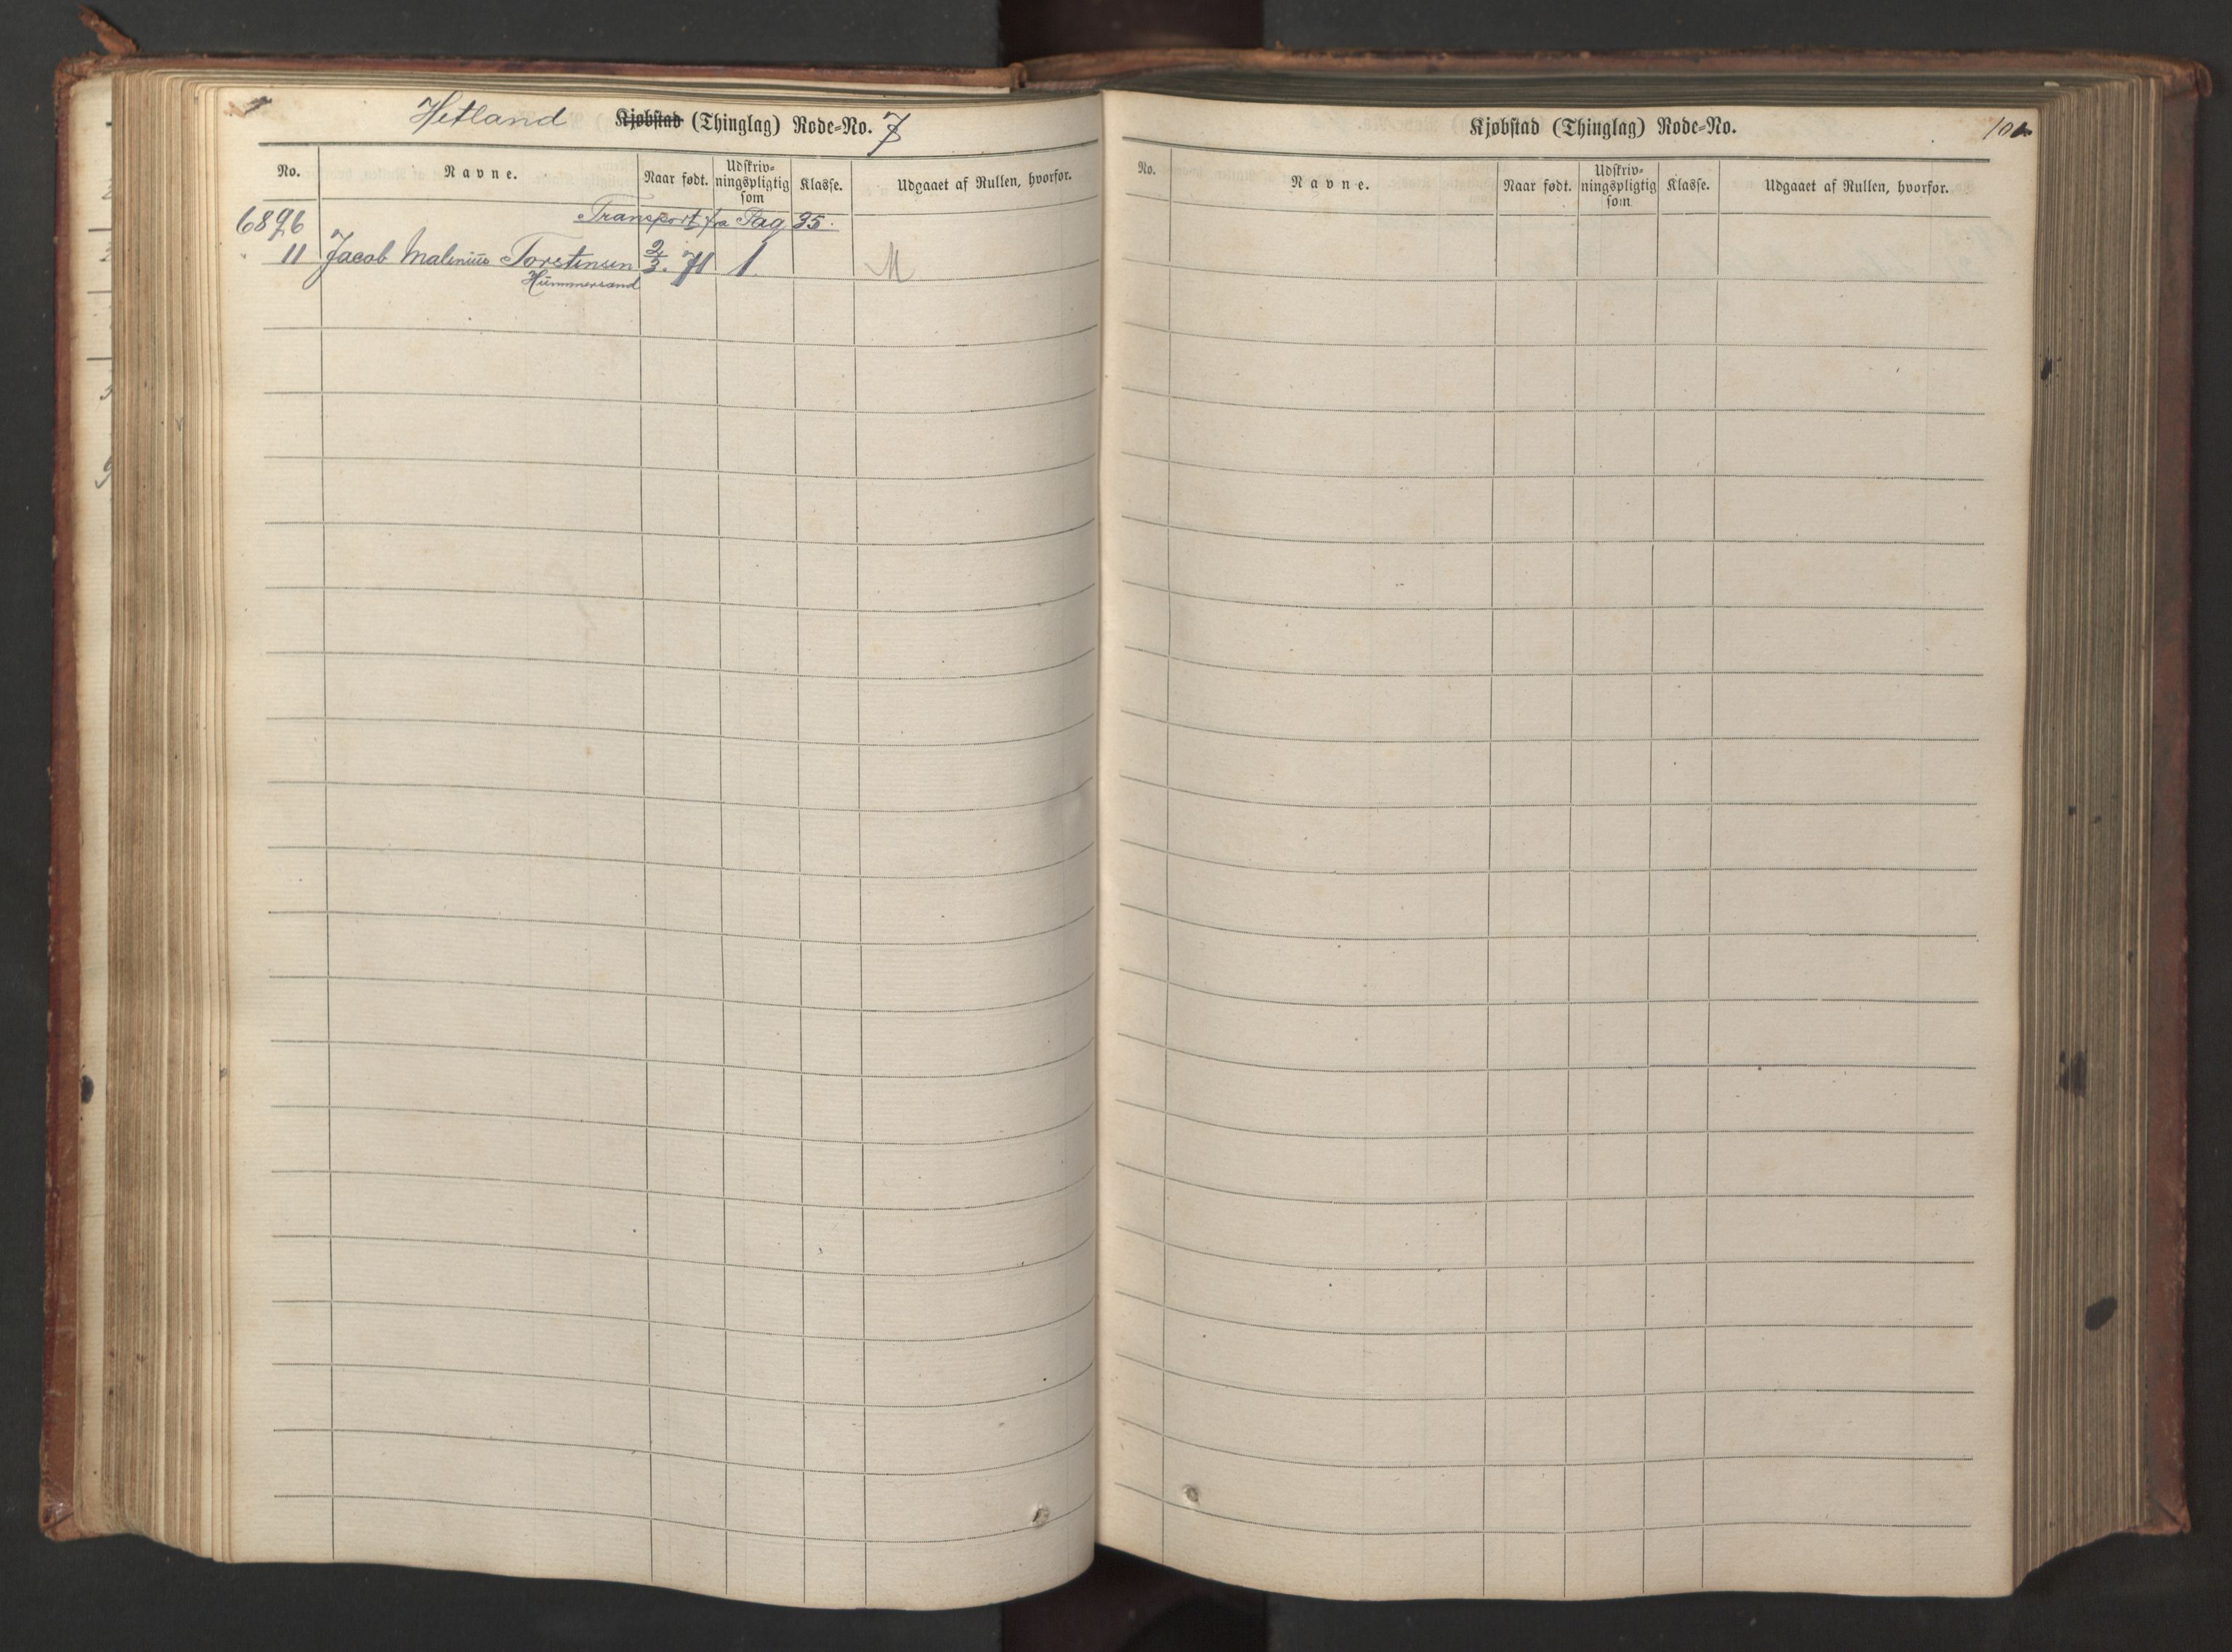 Hetland Kjøbstad (Thinglag) Rode=No. 7
No. Navne. Naar født. Udskriv-ningspligtig som Klasse. Udgaaet af Rullen, hvorfor.
6896 Transport fra Pag 35.
11 Jacob Malenius Torstensen 2/3. 71 1 M
Hummersand
Kjøbstad (Thinglag) Rode=No.
No. Navne. Naar født. Udskriv-ningspligtig som Klasse. Udgaaet af Rullen, hvorfor.